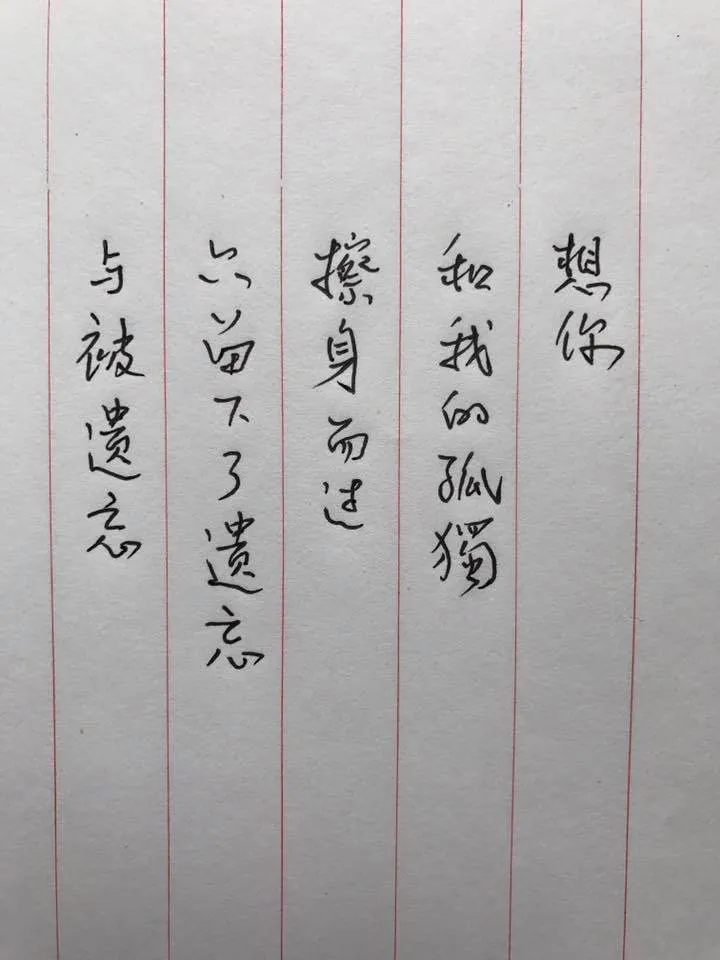 想你
和我的孤獨
擦身而过
只留下了遗忘
与被遗忘